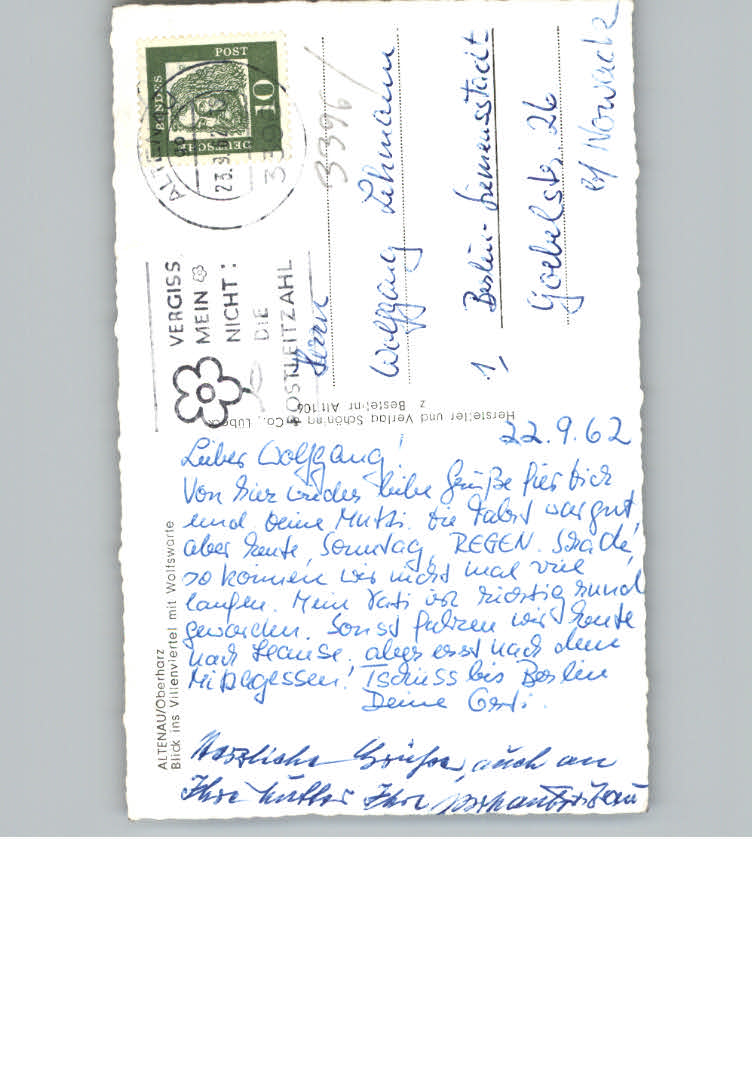 DEUTSCHE
BUNDES
POST
10
ALTENAU
23.9.62
3396
VERGISS
MEIN
NICHT:
DIE
POSTLEITZAHL
3396/
Herrn
Wolfgang Lehmann
1 Berlin-Siemensstadt
Goebelstr. 26
b/ Nowack
Hersteller und Verlag Schöning & Co., Lübeck
z Bestellnr Alt 106
ALTENAU/Oberharz
Blick ins Villenviertel mit Wolfswarte
22.9.62
Lieber Wolfgang!
Von hier wieder liebe Grüße für Dich
und Deine Mutti. Die Fahrt war gut,
aber heute, Sonntag, REGEN. Schade,
so können wir nicht mal viel
laufen. Mein Vati ist richtig rund
geworden. Sonst fahren wir heute
nach Hause, aber erst nach dem
Mittagessen! Tschüss bis Berlin
Deine
Herzliche Grüße, auch an
Ihre Mutter Ihre